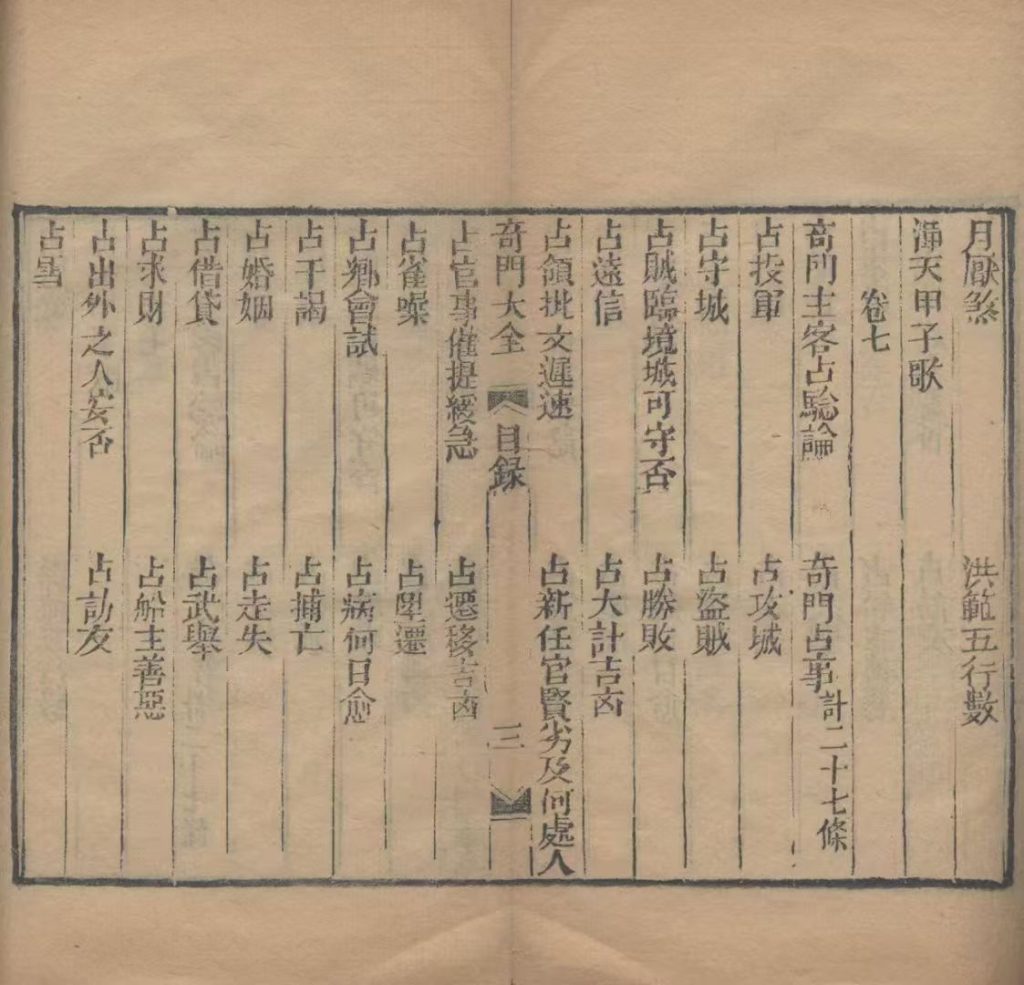 月厭煞　洪範五行數
滯天甲子歌
卷七
奇門主客占驗論　奇門占事計二十七條
占投軍　占攻城
占守城　占盜賊
占賊臨境城可守否　占勝敗
占遠信　占大計吉凶
占領批文遲速　占新任官賢劣及何處人
奇門大全　目錄　三
占官事催提緩急　占遷移吉凶
占雀噪　占陞遷
占鄉會試　占病何日愈
占干謁　占捕亡
占婚姻　占走失
占借貸　占武舉
占求財　占船主善惡
占出外之人安否　占訪友
占雪